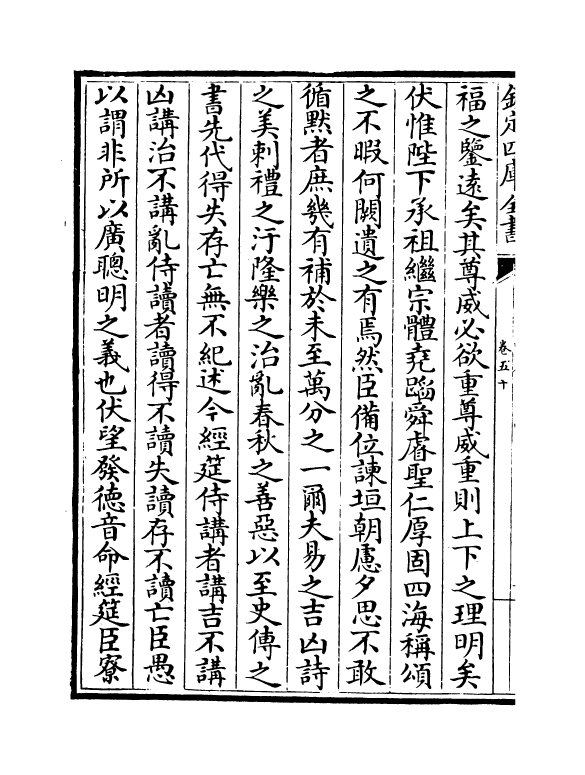 欽定四庫全書
卷五十
福之鑒遠矣其尊威必欲重尊威重則上下之理明矣
伏惟陛下承祖繼宗體堯蹈舜睿聖仁厚固四海稱頌
之不暇何闕遺之有焉然臣備位諫垣朝慮夕思不敢
循黙者庶幾有補於未至萬分之一爾夫易之吉凶詩
之美刺禮之汙隆樂之治亂春秋之善惡以至史傳之
書先代得失存亡無不紀述今經筵侍講者講吉不講
凶講治不講亂侍讀者讀得不讀失讀存不讀亡臣愚
以謂非所以廣聰明之義也伏望發德音命經筵臣寮